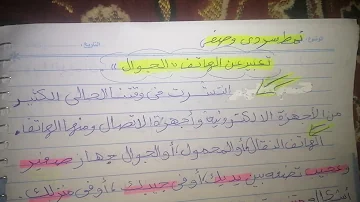 نمط سردي وصفي
تعبير عن الهاتف «الجوال»
انتشرت في وقتنا الحالي الكثير
من الأجهزة الالكترونية وأجهزة الاتصال ومنها الهاتف.
الهاتف النقال أو المحمول، أو الجوال جهاز صغير
وعجيب تضعه بين يديك، أو في جيبك، أو في منزلك